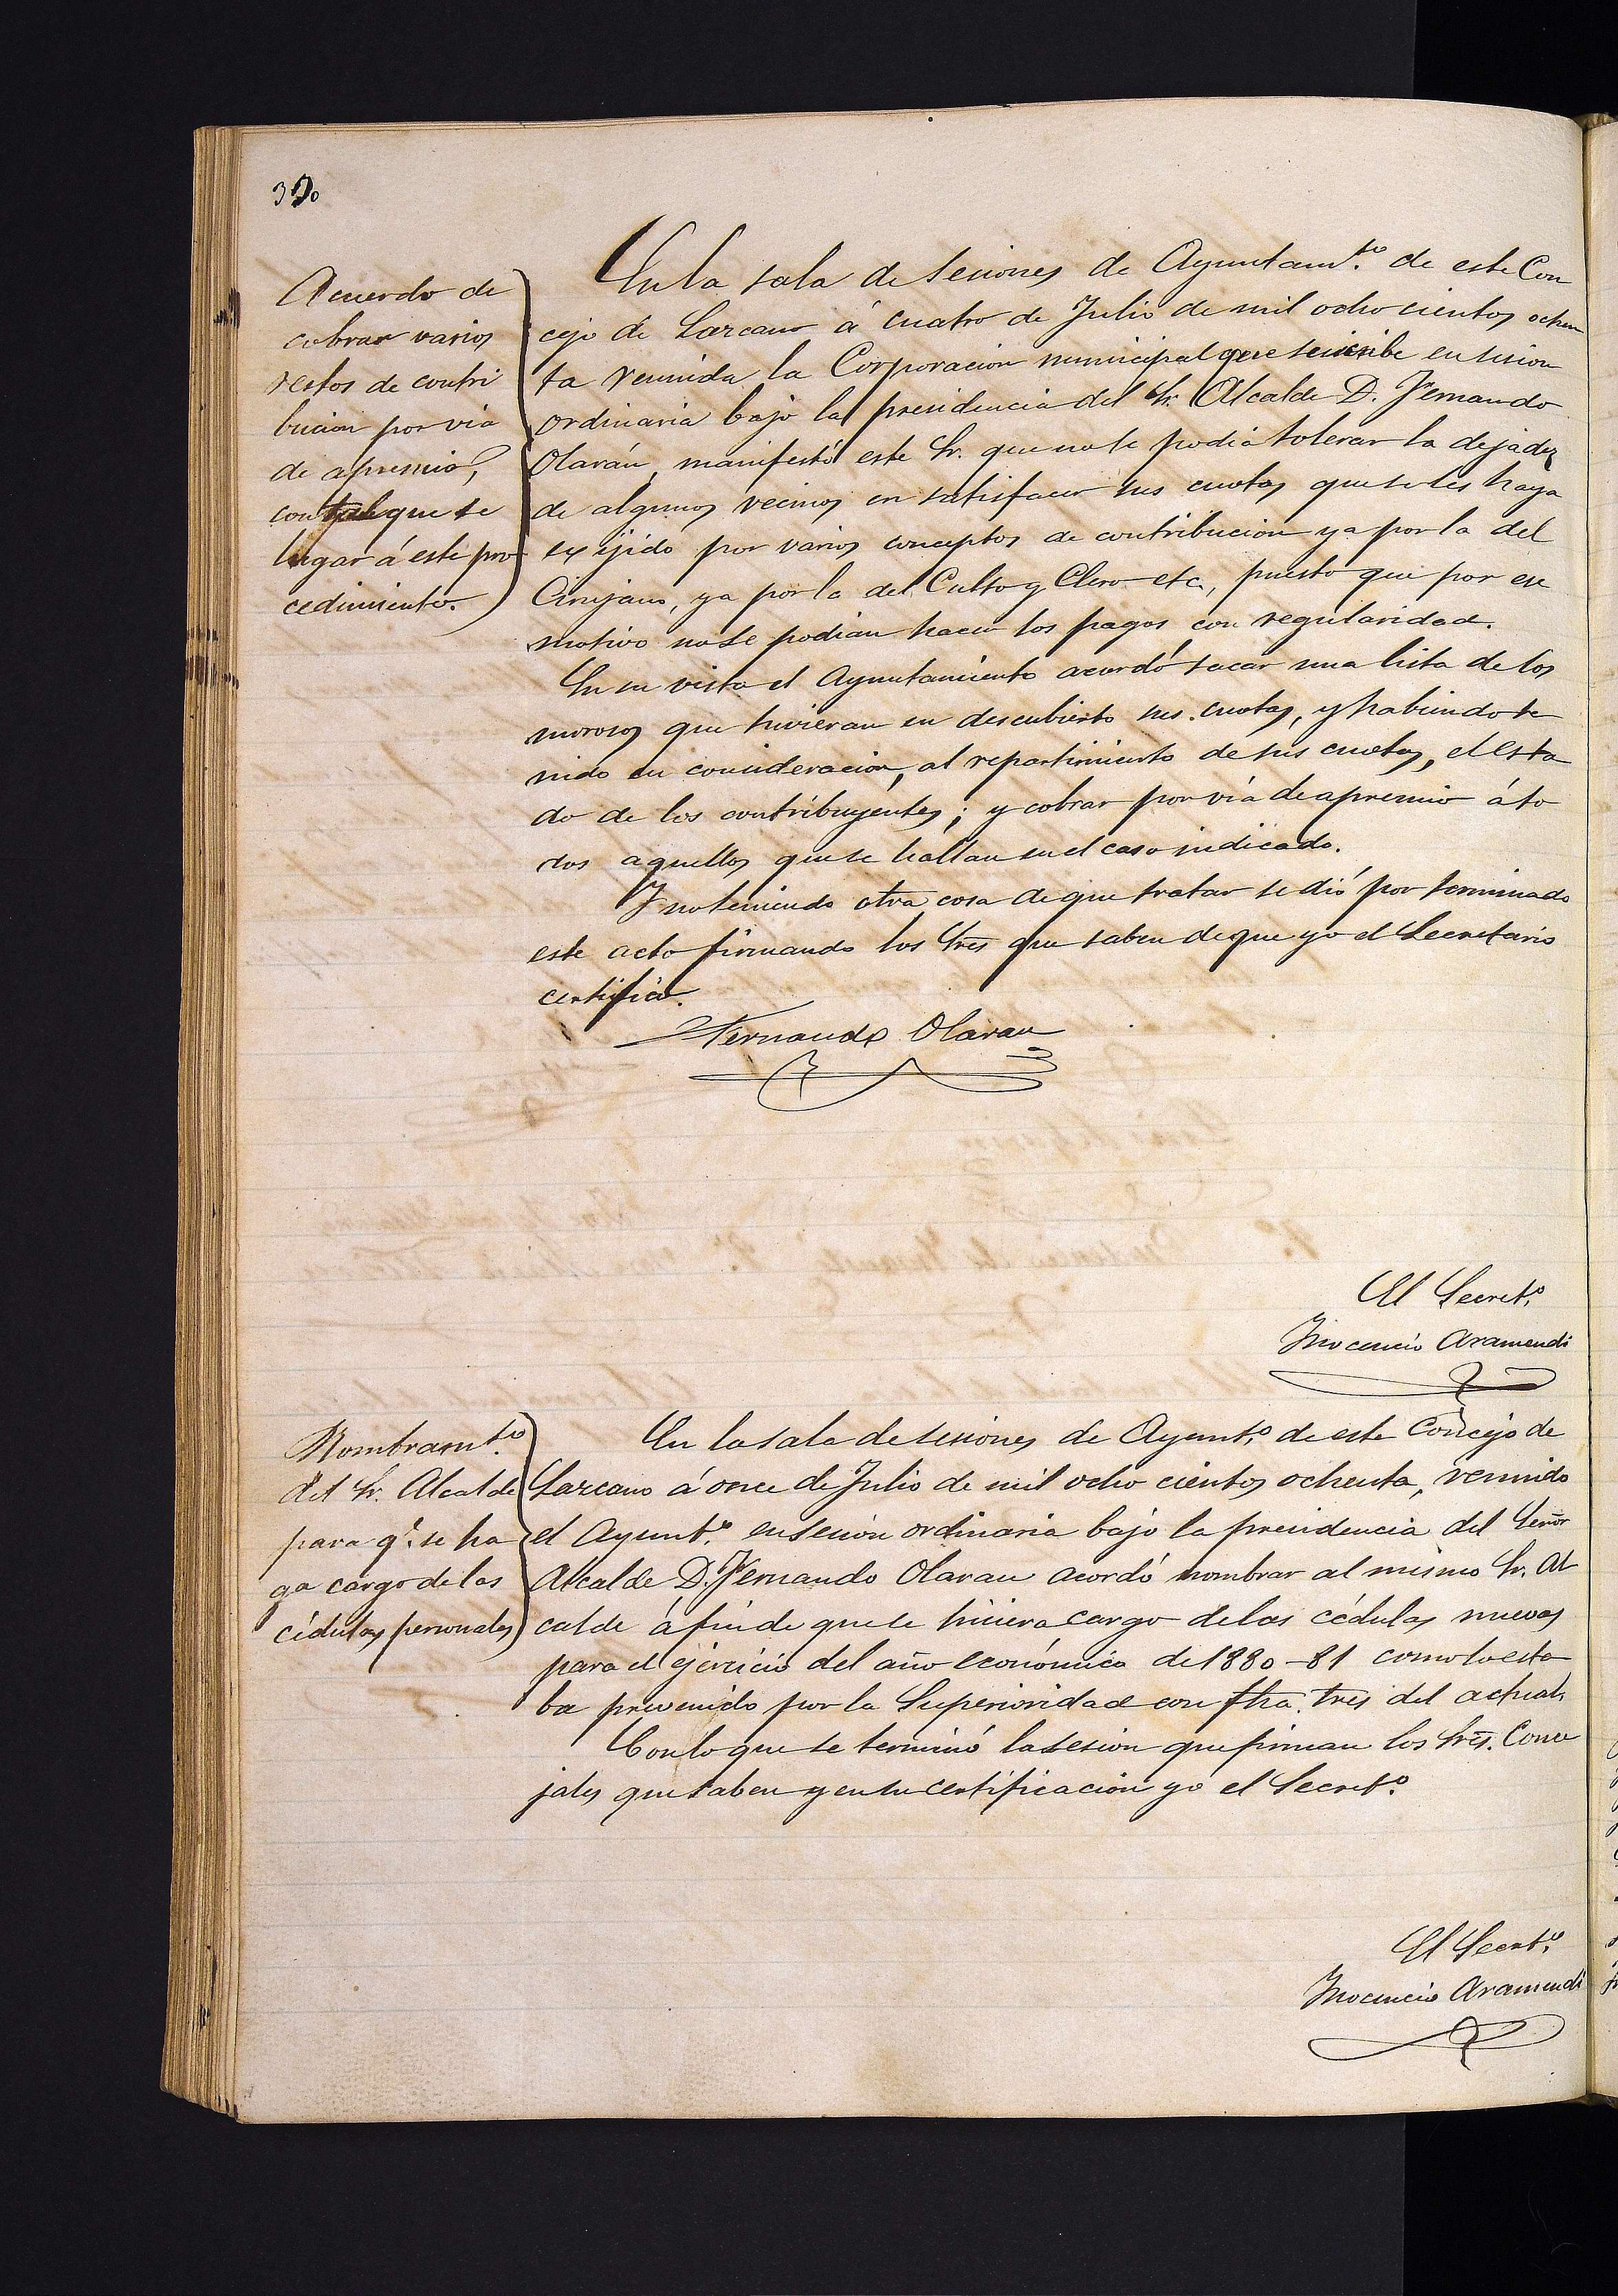 Acuerdo de
cobrar varios
restos de contri
bucion por via
de apremio,
que se
lugar á este pro
cedimiento.
En la sala de sesiones de Ayuntam.to de este Con
cejo de Lazcano á cuatro de Julio de mil ochocientos ochen
ta reunida la Corporacion municipal que suscribe en sesion
ordinaria bajo la presidencia del Sr. Alcalde D. Fernando
Olarán, manifestó este Sr. que no se podia tolerar la dejadez
de algunos vecinos en satisfacer sus cuotas que se les haya
exijido por varios conceptos de contribucion ya por la del
Cirujano, ya por la del Culto y Clero etc, puesto que por ese
motivo no se podian hacer los pagos con regularidad.
En su vista el Ayuntamiento acordó sacar una lista de los
morosos que tuvieran en descubierto sus cuotas, y habiendo te
nido en consideracion, al repartimiento de sus cuotas, el esta
do de los contribuyentes; y cobrar por via de apremio á to
dos aquellos que se hallan en el caso indicado.
Y no teniendo otra cosa de que tratar se dió por terminado
este acto firmando los Sres que saben de que yo el Secretario
certifico.
Fernando Olaran
El Secret.o
Inocencio Aramendi
Nombramt.o
del Sr. Alcalde
para q.e se ha
ga cargo de las
cédulas personales
En la sala de sesiones de Ayunt.o de este Concejo de
Lazcano á once de Julio de mil ocho cientos ochenta, reunido
el Ayunt.o en sesion ordinaria bajo la presidencia del Señor
Alcalde D. Fernando Olaran acordó nombrar al mismo Sr. Al
calde á fin de que se hiciera cargo de las cédulas nuevas
para el ejercicio del año económico de 1880-81 como lo esta
ba prevenido por la Superioridad con fha. tres del actual.
Con lo que se terminó la sesion que firman los Sres. Conce
jales que saben y en su certificacion yo el Secret.o
El Secret.o
Inocencio Aramendi